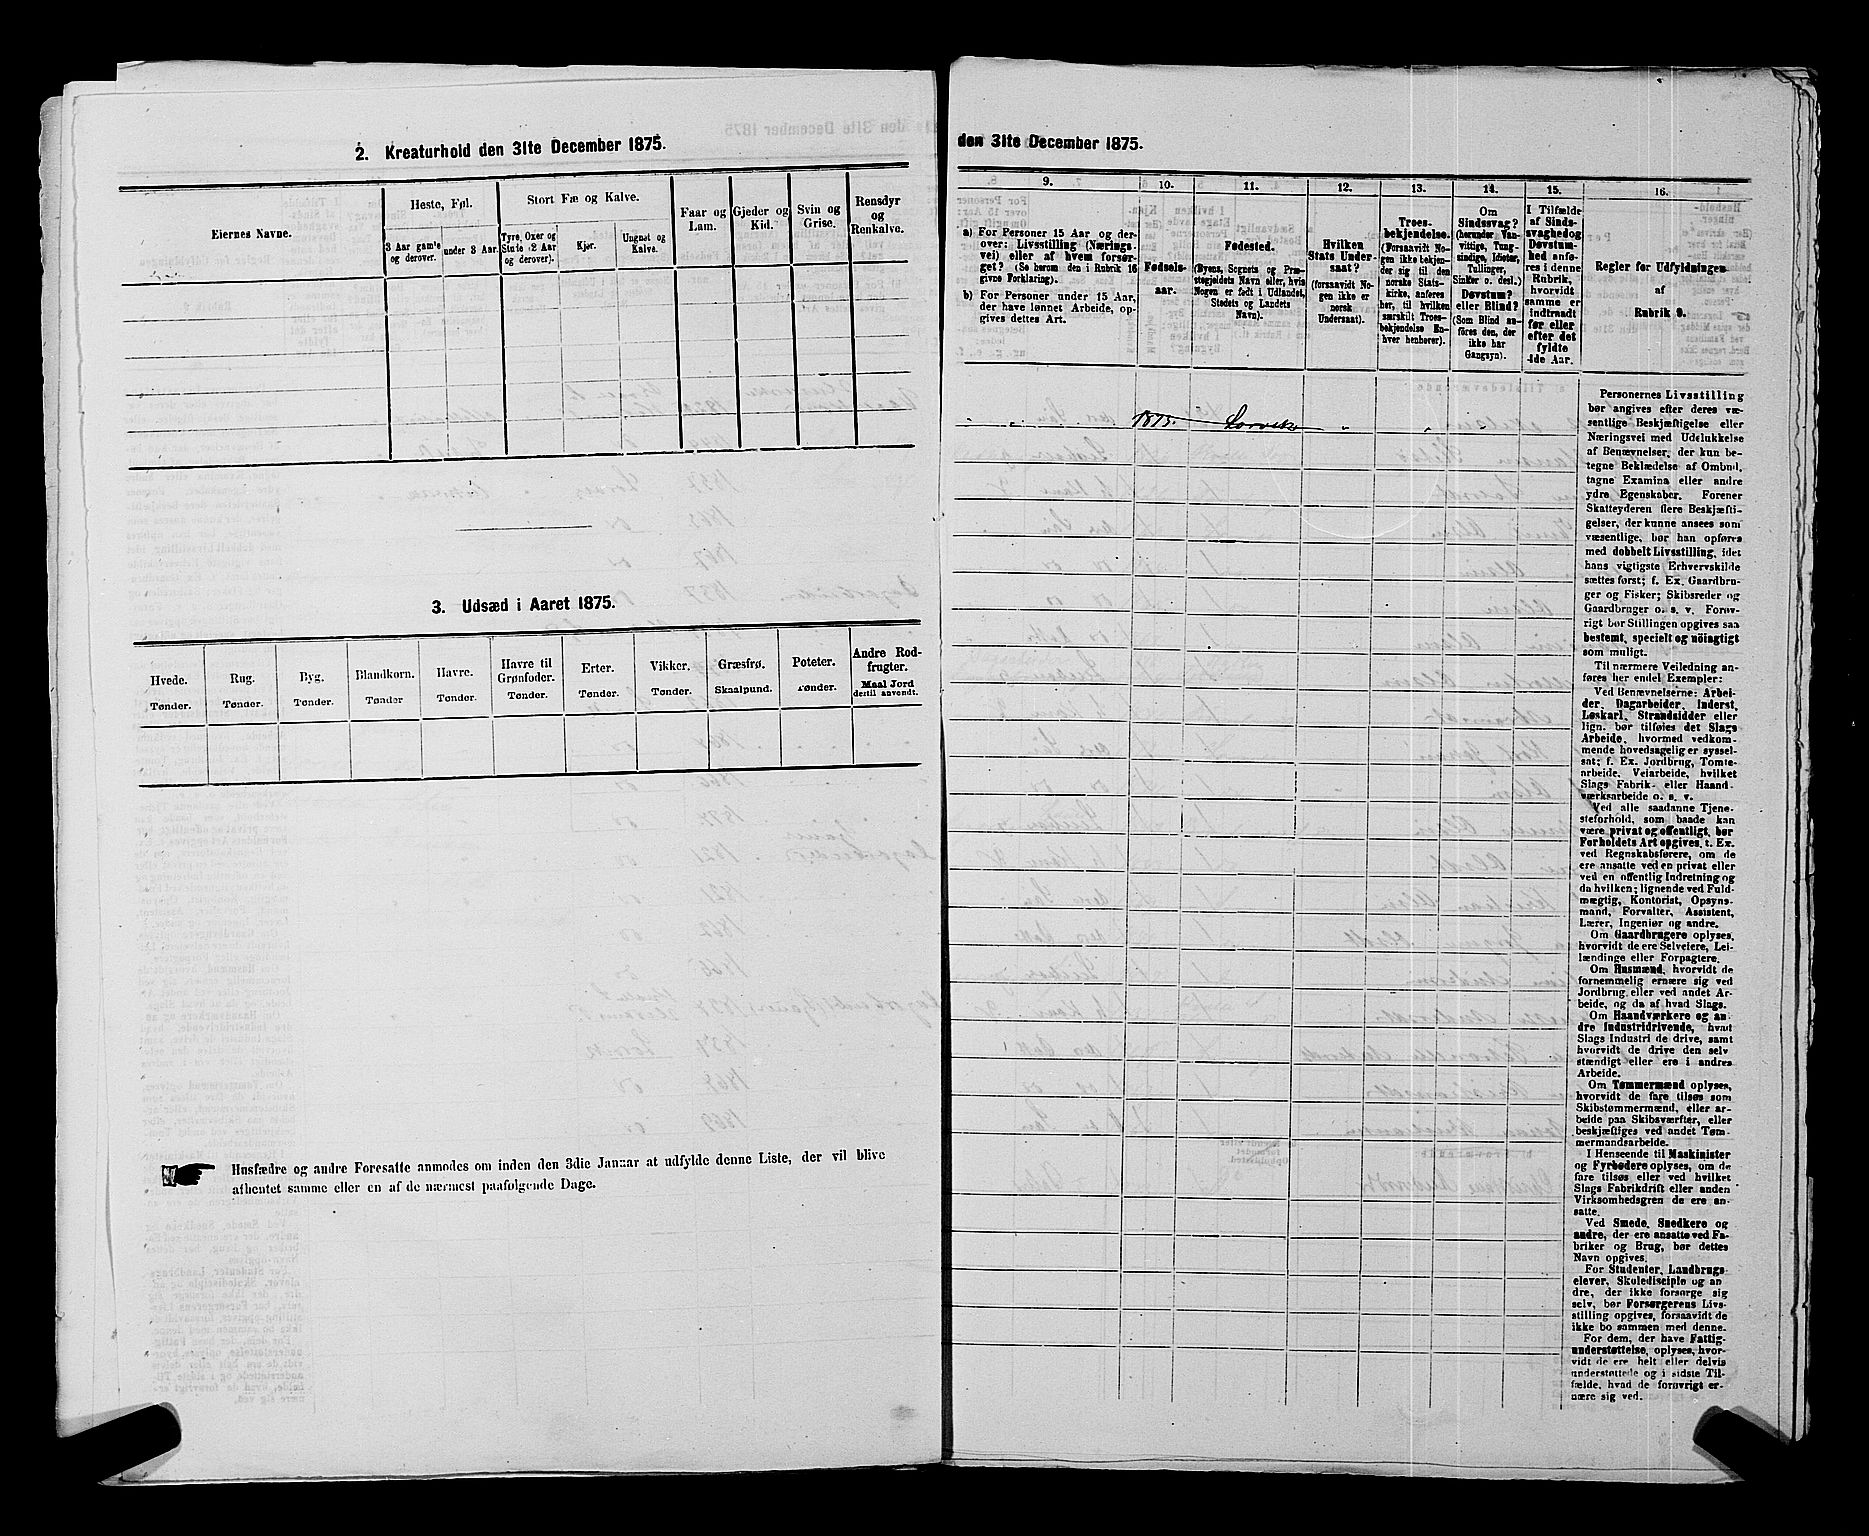 2. Kreaturhold den 31te December 1875.
Eiernes Navne.
Heste, Føl.
3 Aar gamle og derover.
under 3 Aar.
Stort Fæ og Kalve.
Tyre, Oxer og Stude (2 Aar og derover).
Kjør.
Ungnøt og Kalve.
Faar og Lam.
Gjeder og Kid.
Svin og Grise.
Rensdyr og Renkalve.
3. Udsæd i Aaret 1875.
Hvede. Tønder.
Rug. Tønder.
Byg. Tønder.
Blandkorn. Tønder
Havre. Tønder.
Havre til Grønfoder. Tønder.
Erter. Tønder.
Vikker. Tønder.
Græsfrø. Skaalpund.
Poteter. Tønder.
Andre Rodfrugter. Maal Jord dertil anvendt.
Husfædre og andre Foresatte anmodes om inden den 3die Januar at udfylde denne Liste, der vil blive
afhentet samme eller en af de nærmest paafølgende Dage.
den 31te December 1875.
9.
a) For Personer 15 Aar og der-
over: Livsstilling (Nærings-
vei) eller af hvem forsør-
get? (Se herom den i Rubrik 16
givne Forklaring).
b) For Personer under 15 Aar,
der have lønnet Arbeide, op-
gives dettes Art.
10.
Fødsels-
aar.
11.
Fødested.
(Byens, Sognets og Præ-
stegjeldets Navn eller, hvis
Nogen er født i Udlandet,
Stedets og Landets
Navn).
12.
Hvilken
Stats Under-
saat?
(forsaavidt No-
gen ikke er
norsk
Undersaat).
13.
Troes-
bekjendelse.
(Forsaavidt No-
gen ikke bekjen-
der sig til den
norske Stats-
kirke, anføres
her, til hvilken
særskilt Troes-
bekjendelse En-
hver henhører).
14.
Om
Sindssvag?
(herunder Van-
vittige, Tung-
sindige, Idioter,
Tullinger,
Sinker o. desl.)
Døvstum?
eller Blind?
(Som Blind an-
føres den, der
ikke har
Gangsyn).
15.
I Tilfælde
af Sinds-
svaghed og
Døvstum-
hed anfø-
res i denne
Rubrik,
hvorvidt
samme er
indtraadt
før eller
efter det
fyldte
4de Aar.
16.
Regler for Udfyldningen
af
Rubrik 9.
1875. Larvik
Personernes Livsstilling
bør angives efter deres væ-
sentlige Beskjæftigelse eller
Næringsvei med Udelukkelse
af Benævnelser, der kun be-
tegne Beklædelse af Ombud,
tagne Examina eller andre
ydre Egenskaber. Forener
Skatteyderen flere Beskjæfti-
gelser, der kunne ansees som
væsentlige, bør han opføres
med dobbelt Livsstilling, idet
hans vigtigste Erhvervskilde
sættes først; f. Ex. Gaardbru-
ger og Fisker; Skibsreder og
Gaardbruger o. s. v. Forøv-
rigt bør Stillingen opgives saa
bestemt, specielt og nöiagtigt
som muligt.
Til nærmere Veiledning an-
føres her endel Exempler:
Ved Benævnelserne: Arbei-
der, Dagarbeider, Inderst,
Løskarl, Strandsidder eller
lign. bør tilføies det Slags
Arbeide, hvormed vedkom-
mende hovedsagelig er syssel-
sat; f. Ex. Jordbrug, Tomte-
arbeide, Veiarbeide, hvilket
Slags Fabrik- eller Haand-
værksarbeide o. s. v.
Ved alle saadanne Tjene-
steforhold, som baade kan
være privat og offentligt, bør
Forholdets Art opgives, t. Ex.
ved Regnskabsførere, om de
ere ansatte ved en privat eller
ved en offentlig Indretning og
da hvilken; lignende ved Fuld-
mægtig, Kontorist, Opsyns-
mand, Forvalter, Assistent,
Lærer, Ingeniør og andre.
Om Gaardbrugere oplyses,
hvorvidt de ere Selveiere, Lei-
lændinge eller Forpagtere.
Om Husmænd, hvorvidt de
fornemmelig ernære sig ved
Jordbrug eller ved andet Ar-
beide, og da af hvad Slags.
Om Haandværkere og an-
dre Industridrivende, hvad
Slags Industri de drive, samt
hvorvidt de drive den selv-
stændigt eller ere i andres
Arbeide.
Om Tømmermænd oplyses,
hvorvidt de fare tilsøs som
Skibstømmermænd, eller ar-
beide paa Skibsværfter, eller
beskjæftiges ved andet Tøm-
mermandsarbeide.
I Henseende til Maskinister
og Fyrbødere oplyses, om de
fare tilsøs eller ved hvilket
Slags Fabrikdrift eller anden
Virksomhedsgren de ere an-
satte.
Ved Smede, Snedkere og
andre, der ere ansatte ved Fa-
briker og Brug, bør dettes
Navn opgives.
For Studenter, Landbrugs-
elever, Skoledisciple og an-
dre, der ikke forsørge sig
selv, bør Forsørgerens Livs-
stilling opgives, forsaavidt de
ikke bo sammen med denne.
For dem, der have Fattig-
understøttelse, oplyses, hvor-
vidt de ere helt eller delvis
understøttede og i sidste Til-
fælde, hvad de forøvrigt er-
nære sig ved.